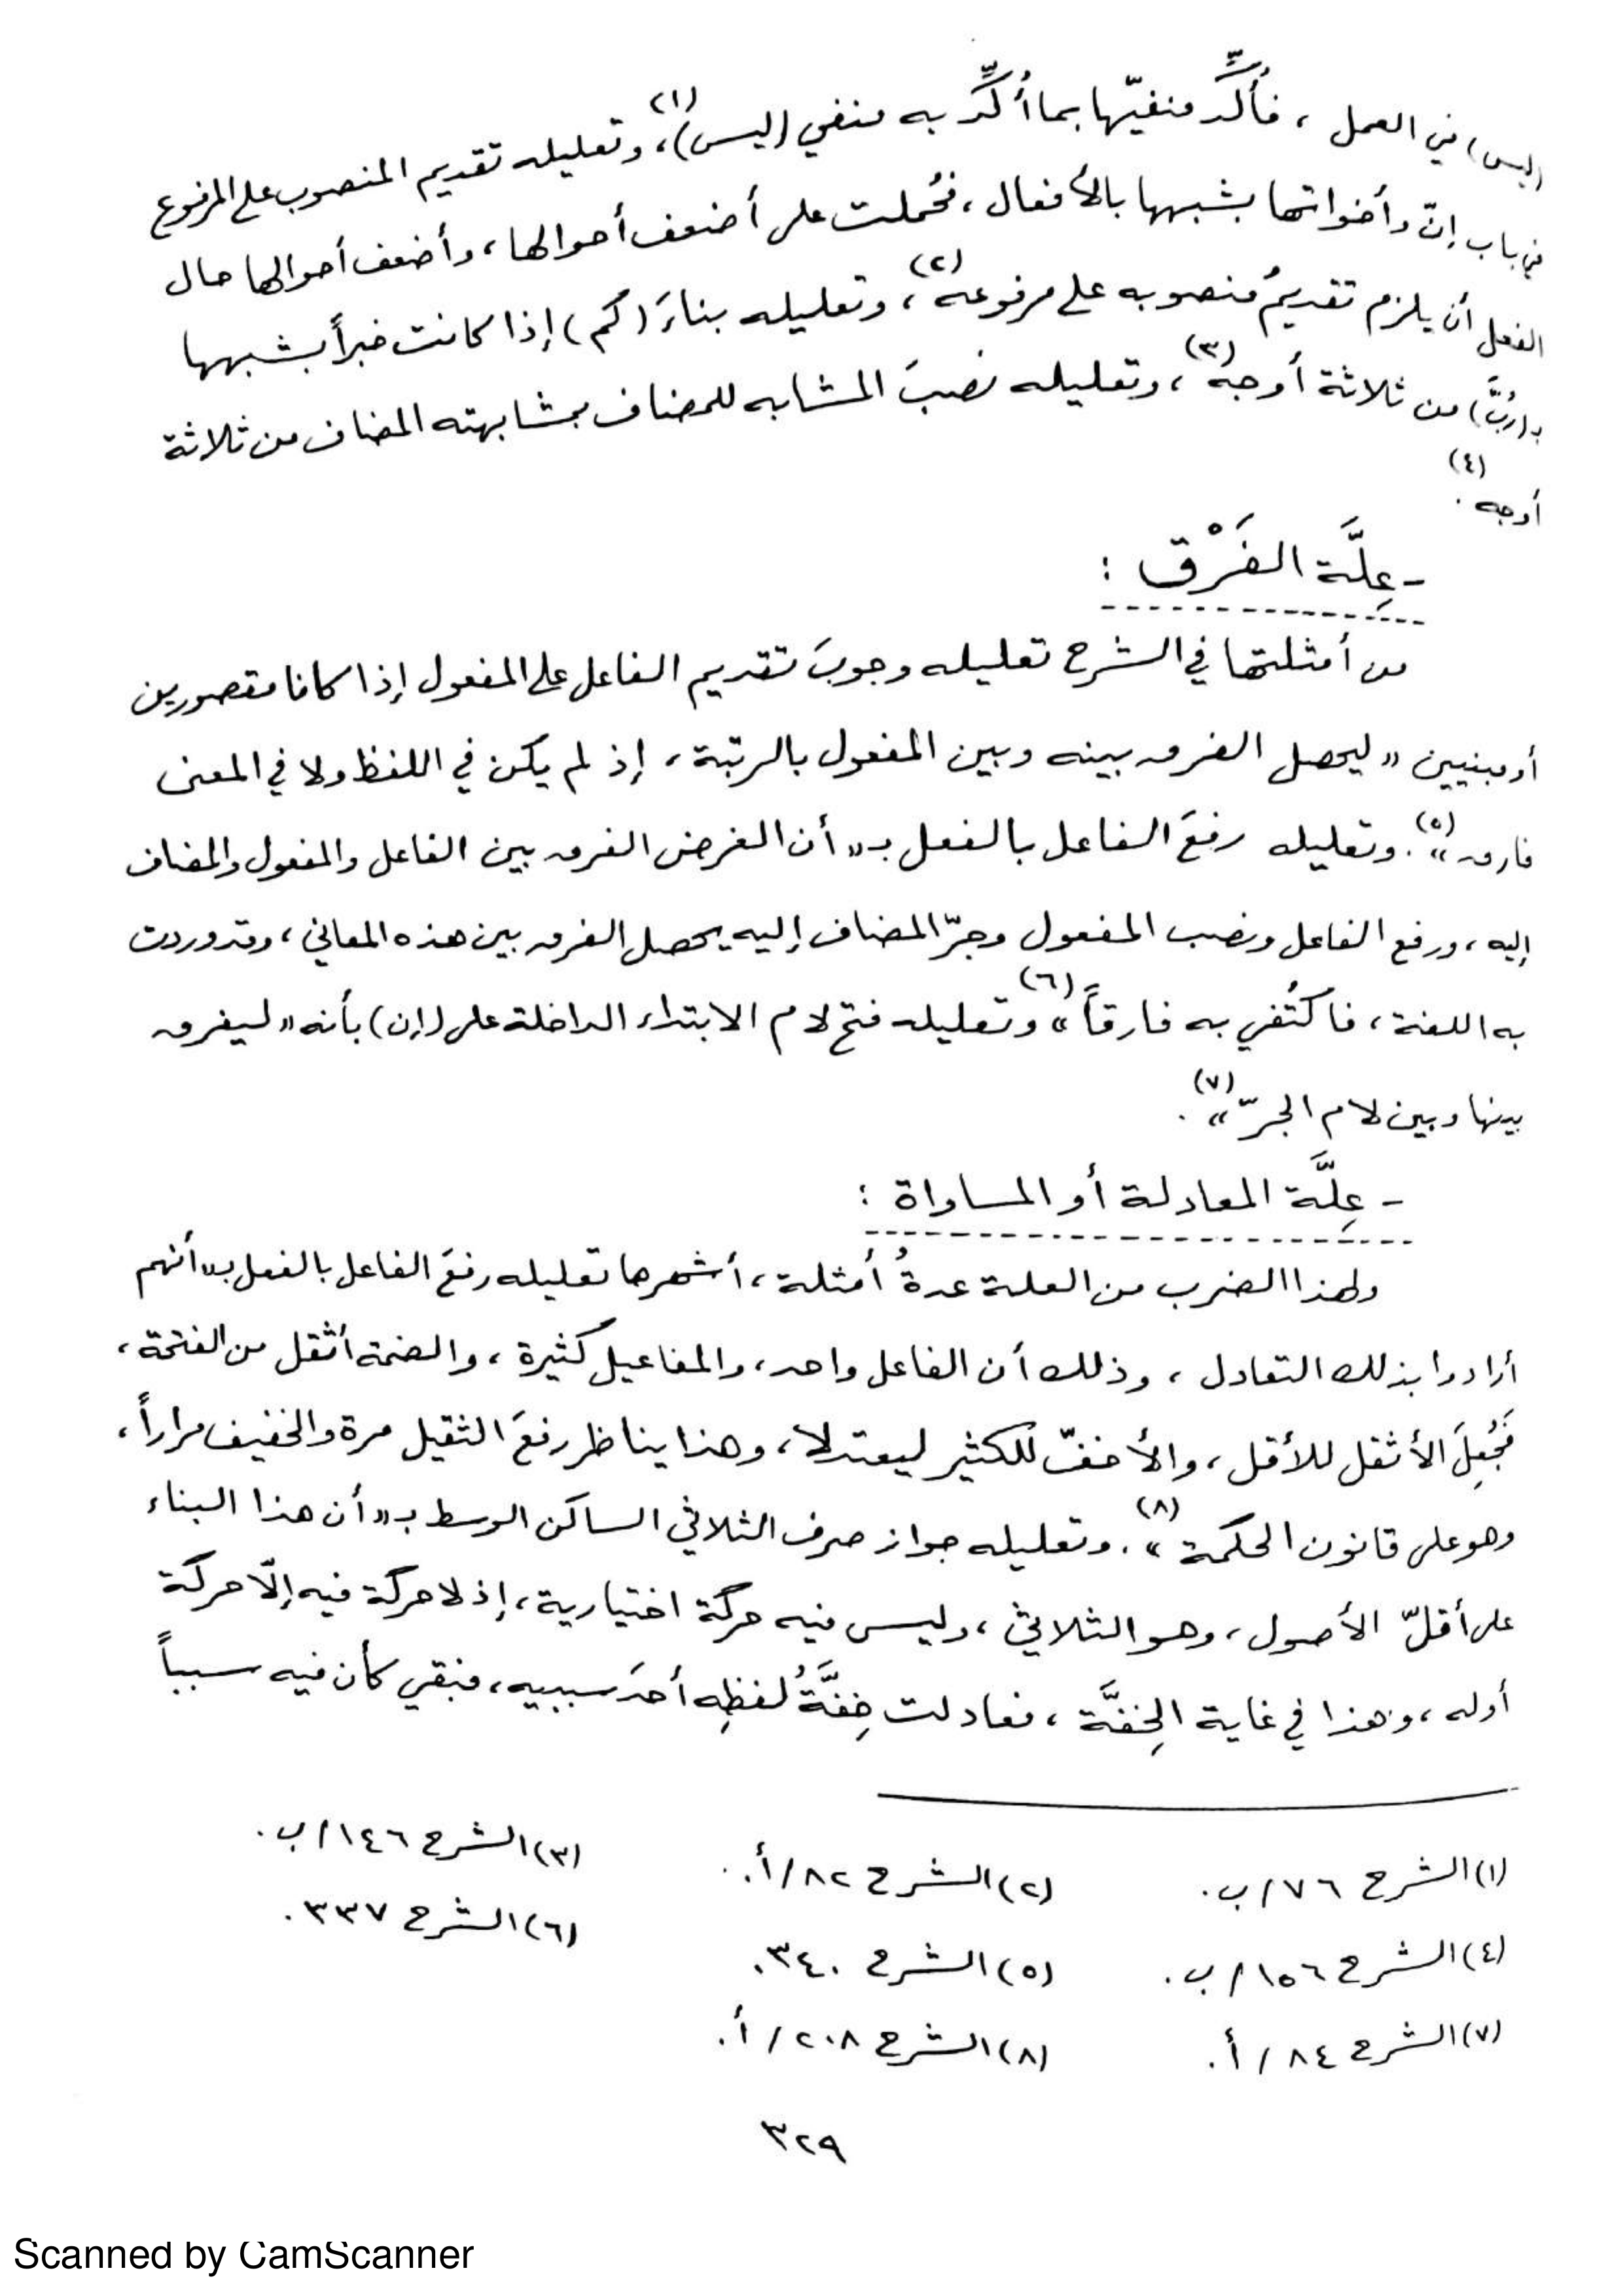 (ليس) في العمل ، فأُكِّد منفيّها بما أُكِّد به منفي (ليس)(١)، وتعليله تقديم المنصوب على المرفوع
في باب إنّ وأخواتها بشبهها بالأفعال ، فحُملت على أضعف أحوالها ، وأضعف أحوالها حال
الفعل أن يلزم تقديمُ منصوبه على مرفوعه(٢) ، وتعليله بناءَ (كم) إذا كانت خبراً بشبهها
بـ(رُبَّ) من ثلاثة أوجه(٣) ، وتعليله نصبَ المشابه للمضاف بمشابهته المضاف من ثلاثة
أوجه(٤) .
- عِلَّة الفَرْق :
من أمثلتها في الشرح تعليله وجوبَ تقديم الفاعل على المفعول إذا كانا مقصورين
أو مبنيين « ليحصل الفرق بينه وبين المفعول بالرتبة ، إذ لم يكن في اللفظ ولا في المعنى
فارق »(٥). وتعليله رفعَ الفاعل بالفعل بـ« أن الغرض الفرق بين الفاعل والمفعول والمضاف
إليه ، ورفع الفاعل ونصب المفعول وجرّ المضاف إليه يحصل الفرق بين هذه المعاني ، وقد وردت
به اللغة ، فاكتُفي به فارقاً »(٦) وتعليله فتح لام الابتداء الداخلة على (إن) بأنه « ليفرق
بينها وبين لام الجرّ »(٧) .
- عِلَّة المعادلة أو المساواة :
ولهذا الضرب من العلة عدةُ أمثلة ، أشهرها تعليله رفعَ الفاعل بالفعل بـ« أنهم
أرادوا بذلك التعادل ، وذلك أن الفاعل واحد ، والمفاعيل كثيرة ، والضمة أثقل من الفتحة ،
فجُعِلَ الأثقل للأقل ، والأخفّ للكثير ليعتدلا ، وهذا يناظر رفعَ الثقيل مرة والخفيف مراراً ،
وهو على قانون الحكمة »(٨). وتعليله جواز صرف الثلاثي الساكن الوسط بـ« أن هذا البناء
على أقلّ الأصول ، وهو الثلاثي ، وليس فيه حركة اختيارية ، إذ لا حركة فيه إلّا حركة
أوله ، وهذا في غاية الخِفَّة ، فعادلت خِفَّةُ لفظِه أحدَ سببيه ، فبقي كأن فيه سبباً
(١) الشرح ٧٦/ب. (٢) الشرح ٨٢/أ. (٣) الشرح ١٤٦/ب.
(٤) الشرح ١٥٦/ب. (٥) الشرح ٣٤٠. (٦) الشرح ٣٣٧.
(٧) الشرح ٨٤/أ. (٨) الشرح ٢٠٨/أ.
٣٢٩
Scanned by CamScanner